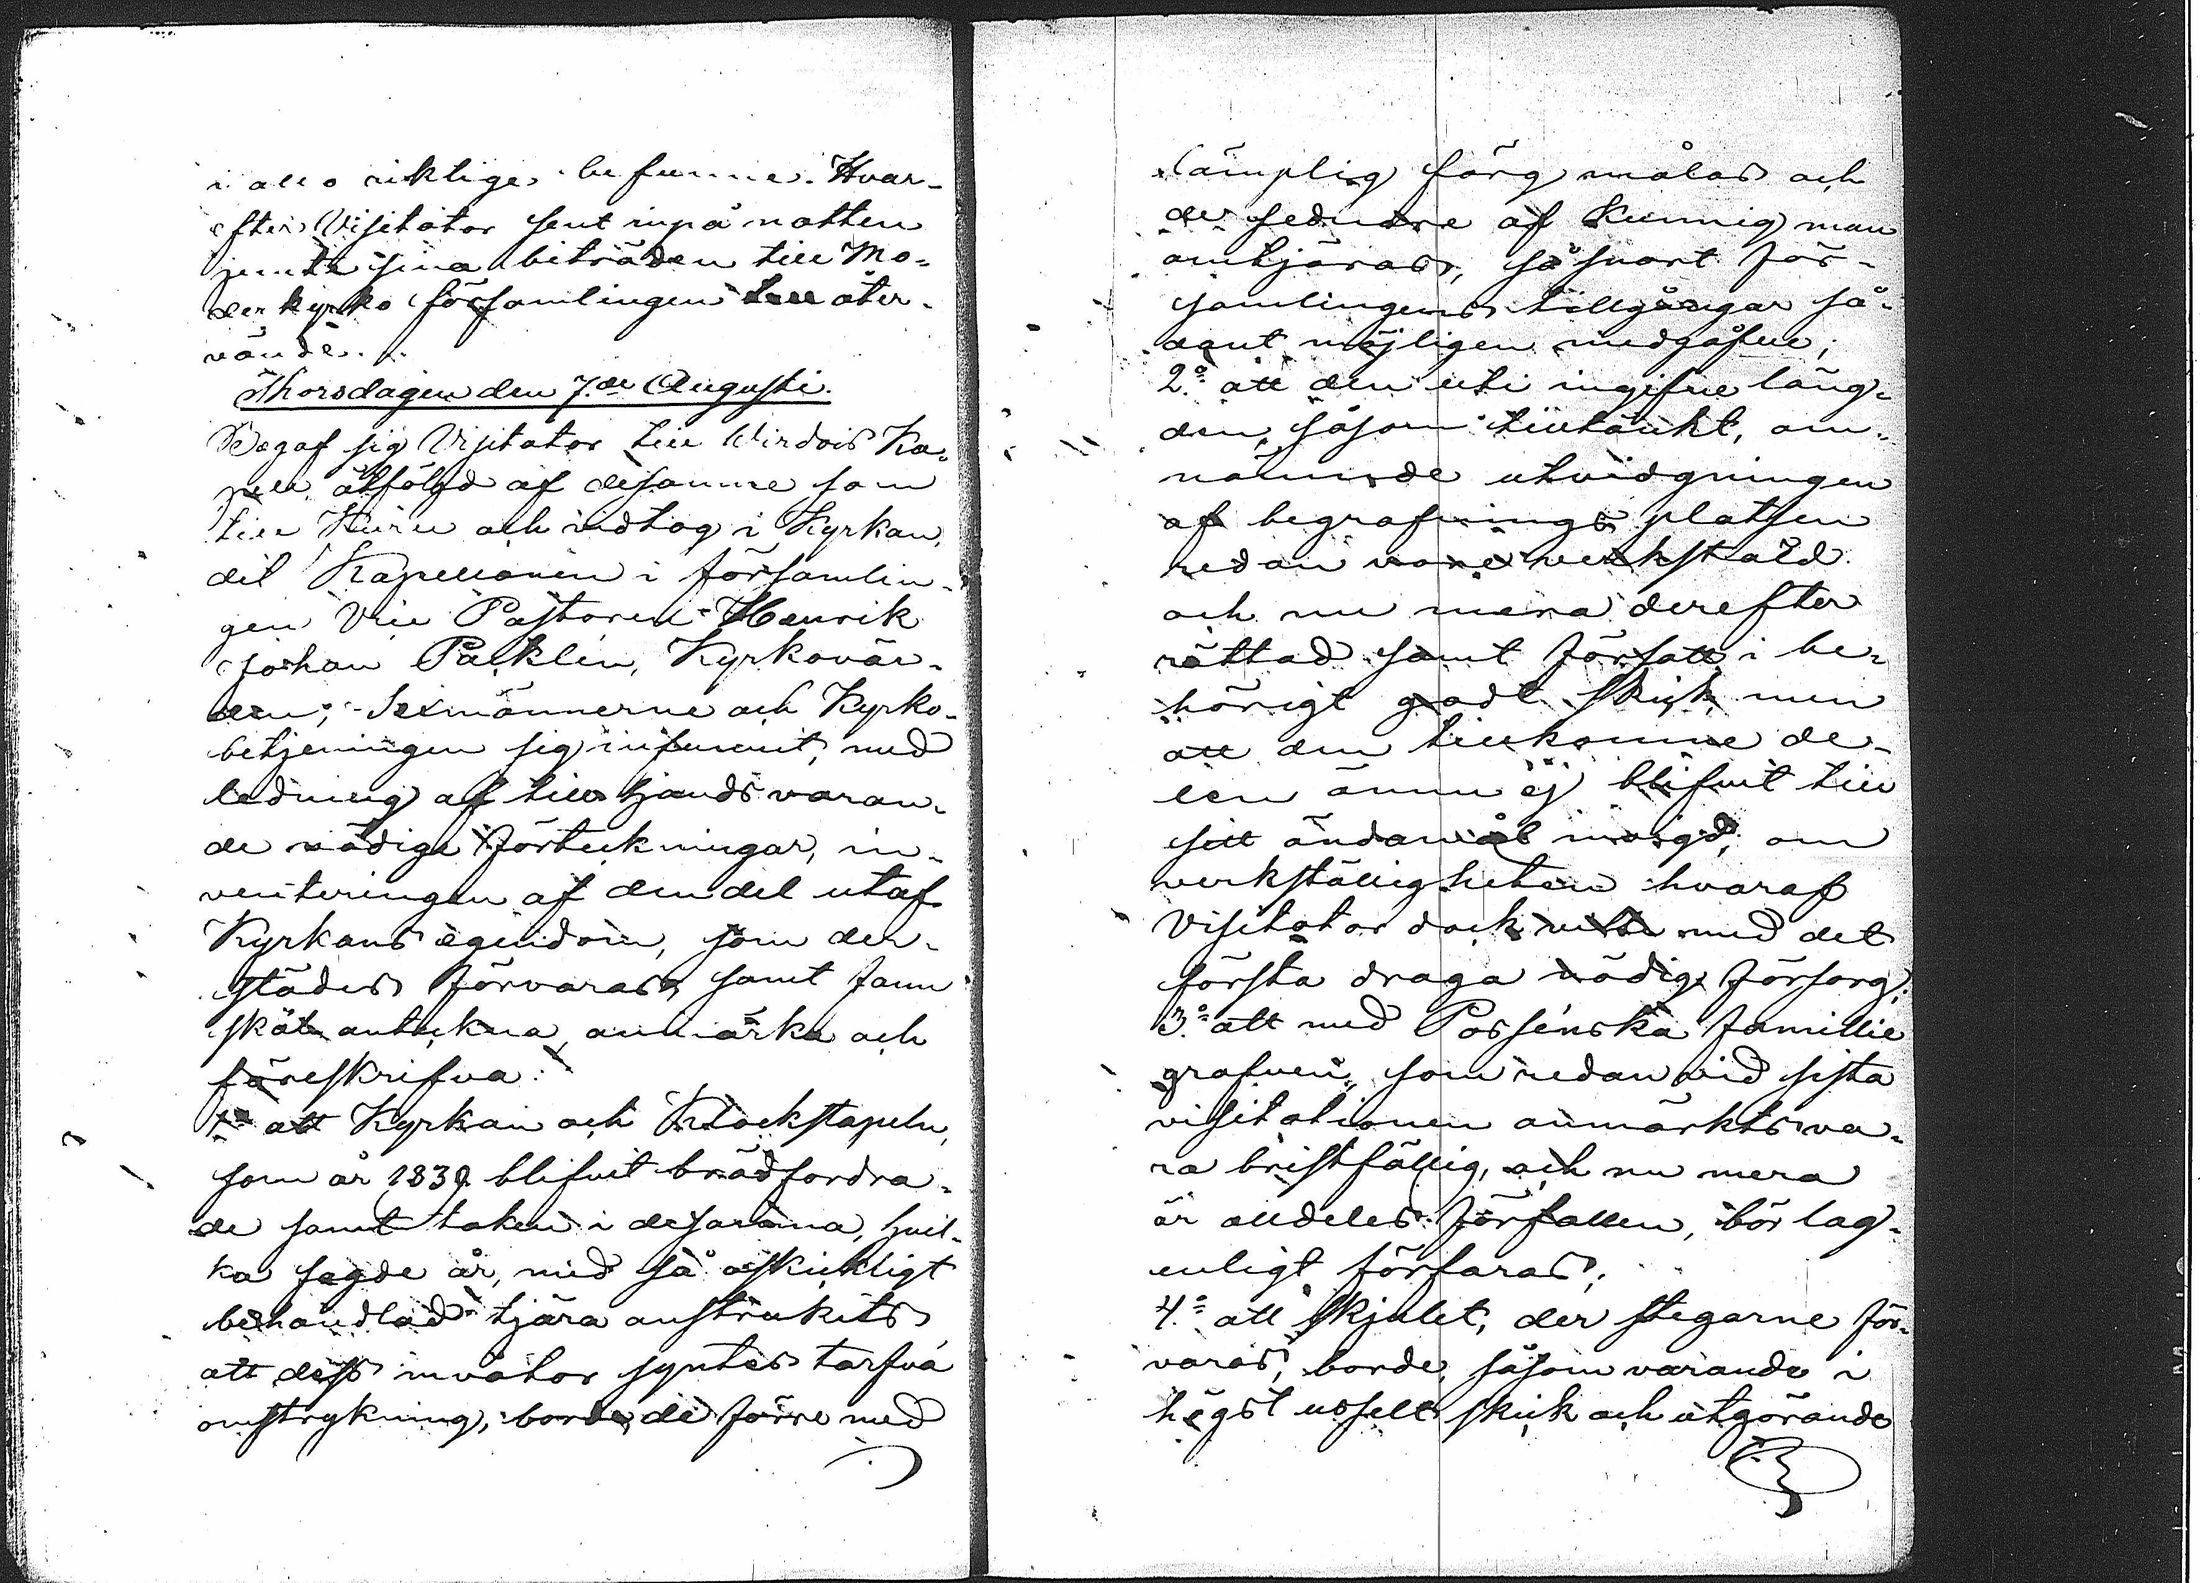 i allo riktige befunne. Hvar-
efter Visitator sent inpå natten
jemte sina biträden till Mo-
derkyrko församlingen åter-
vände.
Thorsdagen den 7.de Augusti.
Begaf sig Visitator till Wirdois Ka-
pell åtföljd af desamme som
till Kuru och vidtog i Kyrkan,
dit Kapellanen i församlin-
gen Vice Pastoren Henrik
Johan Packlén, Kyrkovär-
den, Sexmännerne och Kyrko-
betjeningen sig infunnit, med
ledning af till hands varan-
de nödige förteckningar, in-
venteringen af den del utaf
Kyrkans egendom, som der-
städes förvaras, samt fann
skäl anteckna, anmärka och
föreskrifva:
1:o att Kyrkan och Klockstapeln,
som år 1839 blifvit brädfordra-
de samt taken i desamma, hvil-
ka sagde år, med så oskickligt
behandlad tjära anstrukits
att dess invåtor syntes tarfva
omstrykning, borde, de förre med
lämplig färg målas och
de sednare af kunnig man
omtjäras, så snart för-
samlingens tillgångar så-
dant möjligen medgåfve;
2:o att den uti ingifne läng-
den, såsom tilltänkt, om-
nämnde utvidgningen
af begrafnings platsen
redan vore verkställd
och nu mera derefter
rättad samt försatt i be-
hörigt godt skick, men
att den tillkomne de-
len ännu ej blifvit till
sitt ändamål invigd, om
verkställigheten hvaraf
Visitator dock ville med det
första draga nödig försorg;
3:o att med Possénska famillie
grafven, som redan vid sista
visitationen anmärkts va-
ra bristfällig, och nu mera
är alldeles förfallen, bör lag-
enligt förfaras;
4:o att skjulet, der stegarne för-
varas, borde, såsom varande i
högst usselt skick och utgörande